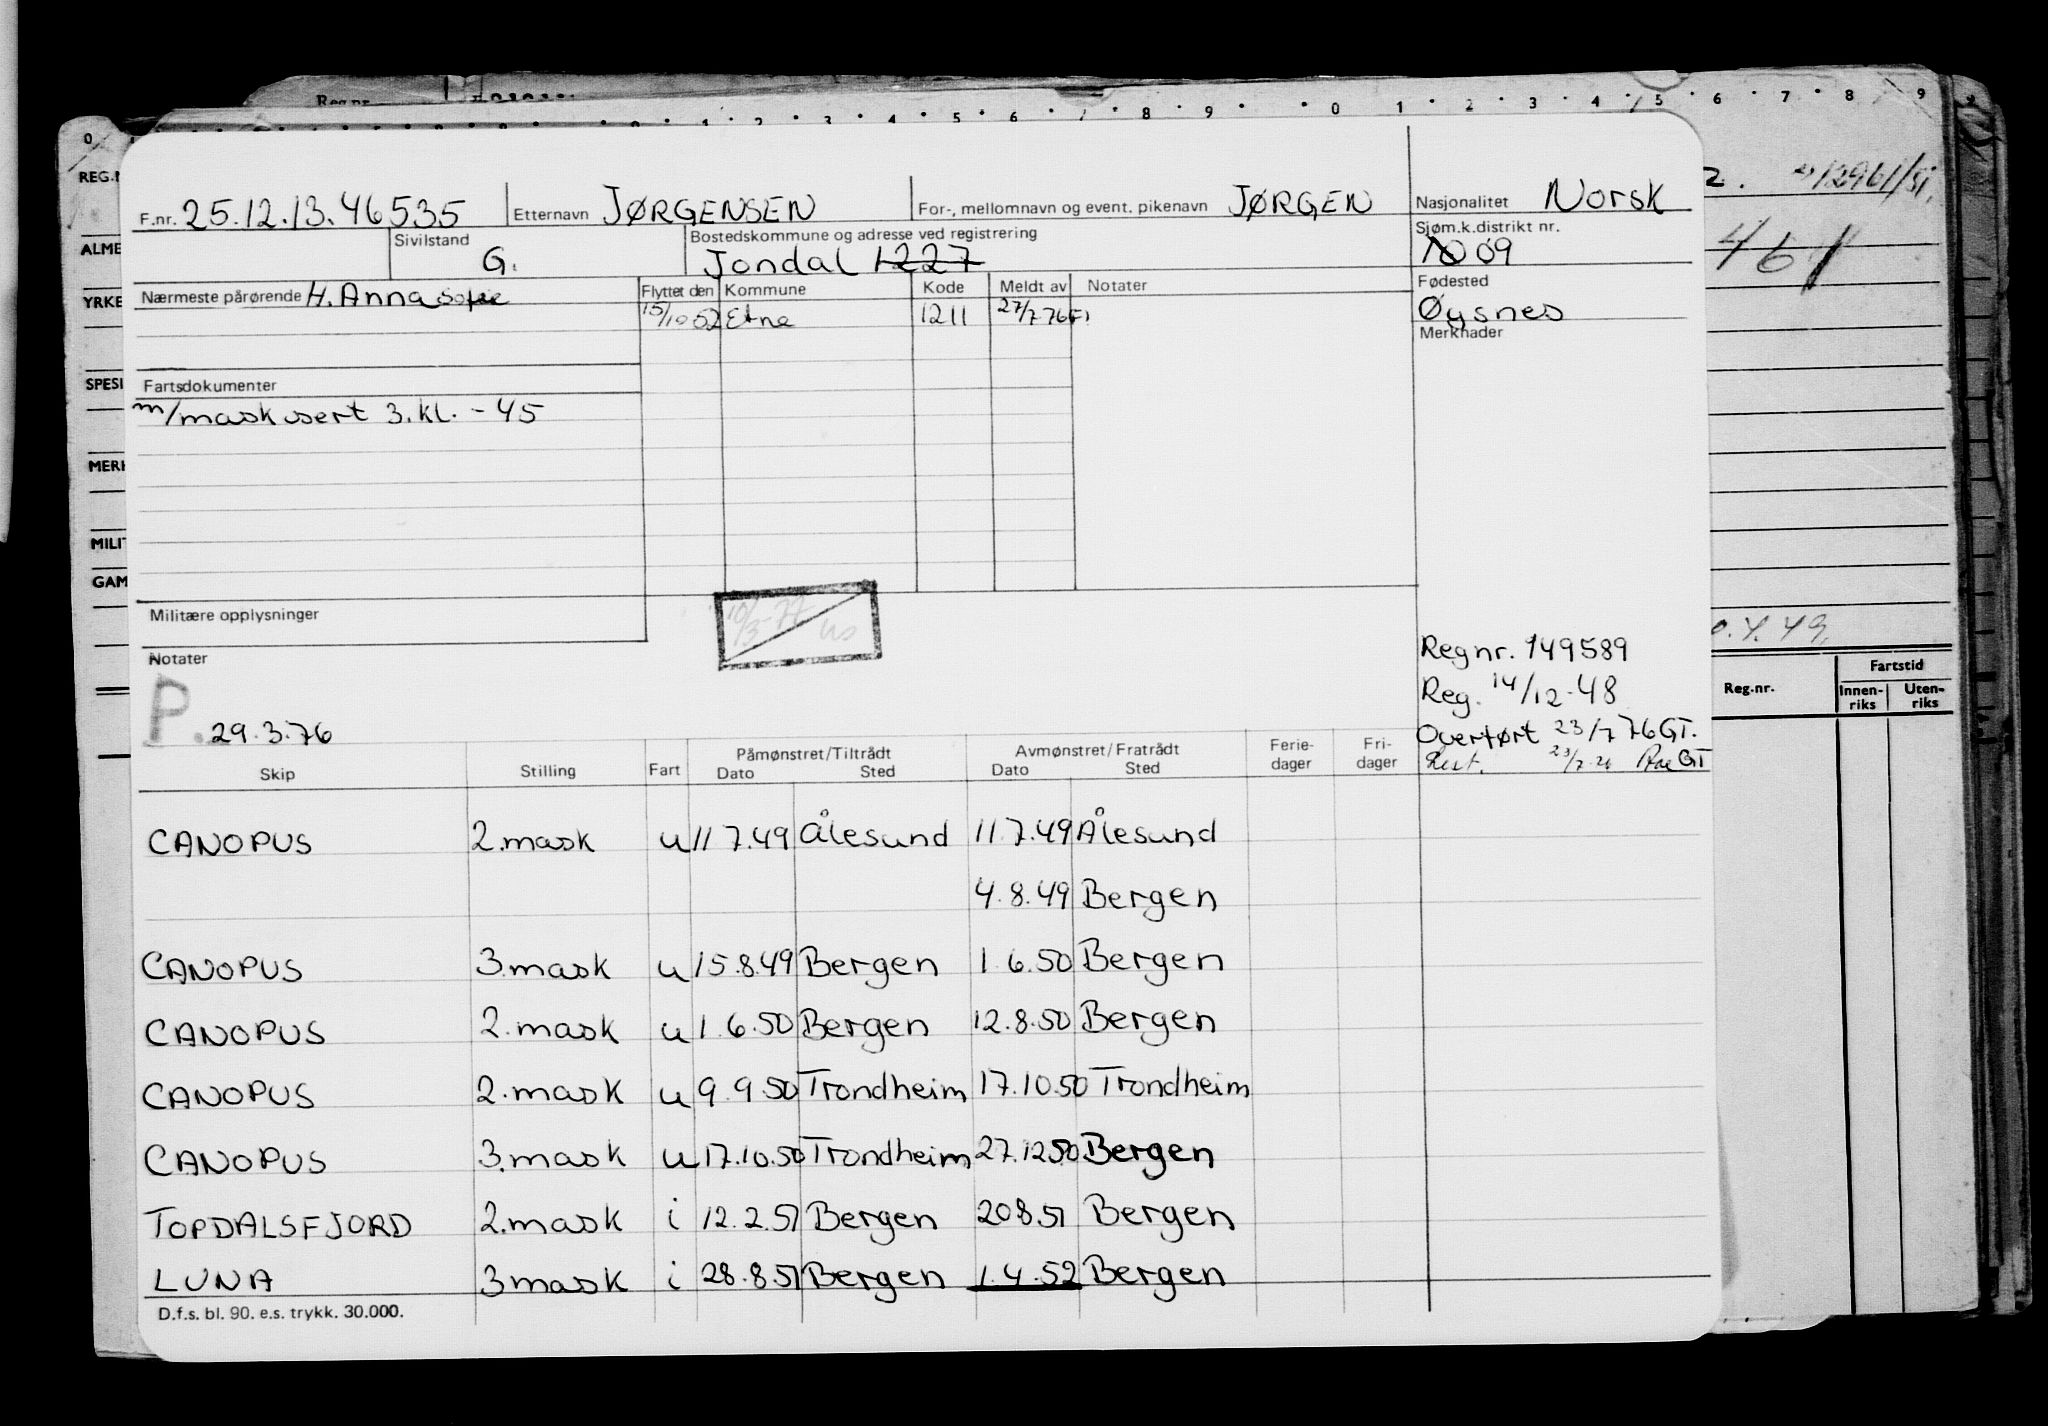 Reg.nr.
0 1 2 3 4 5 6 7 8 9 0 1 2 3 4 5 6 7 8 9
F.nr. 25.12.13.46535 Etternavn JØRGENSEN For-, mellomnavn og event. pikenavn JØRGEN Nasjonalitet Norsk
Sivilstand G. Bostedskommune og adresse ved registrering Jondal 1227 Sjøm.k.distrikt nr. 09
Nærmeste pårørende H. Anna Sofie Flyttet den Kommune Kode Meldt av Notater Fødested
15/10 52 Etne 1211 27/7 76 Øysnes
Merknader
Fartsdokumenter
m/mask sert 3.kl. - 45
REG.N
ALME
YRKE
SPESI
MERK
MILIT
GAM
2. 12961/51.
461
Militære opplysninger
10/3-77
Notater
P. 29.3.76
Regnr. 149589
Reg. 14/12-48
Overført 23/7 76 GT.
GT
Reg.nr. Fartstid
Innen-riks Uten-riks
Skip Stilling Fart Påmønstret/Tiltrådt Dato Sted Avmønstret/Fratrådt Dato Sted Ferie-dager Fri-dager
CANOPUS 2.mask u 11 7.49 Ålesund 11.7.49 Ålesund
4.8.49 Bergen
CANOPUS 3.mask u 15.8.49 Bergen 1.6.50 Bergen
CANOPUS 2.mask u 1.6.50 Bergen 12.8.50 Bergen
CANOPUS 2.mask u 9.9.50 Trondheim 17.10.50 Trondheim
CANOPUS 3.mask u 17.10.50 Trondheim 27.12.50 Bergen
TOPDALSFJORD 2.mask i 12.2.51 Bergen 20.8.51 Bergen
LUNA 3mask i 28.8.51 Bergen 1.4.52 Bergen
D.f.s. bl. 90. e.s. trykk. 30.000.